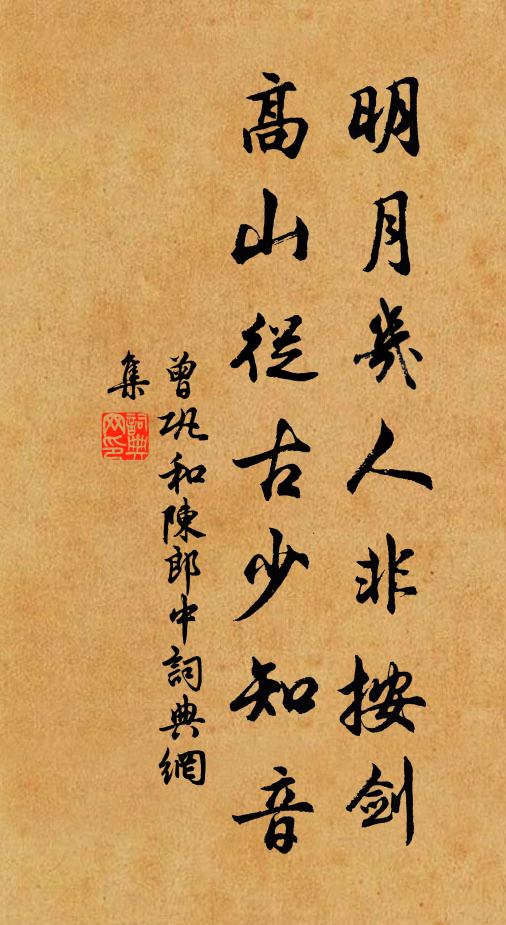 明月幾人非按劍
高山從古少知音
曾鞏和陳郎中詞典網
集
詞典網印